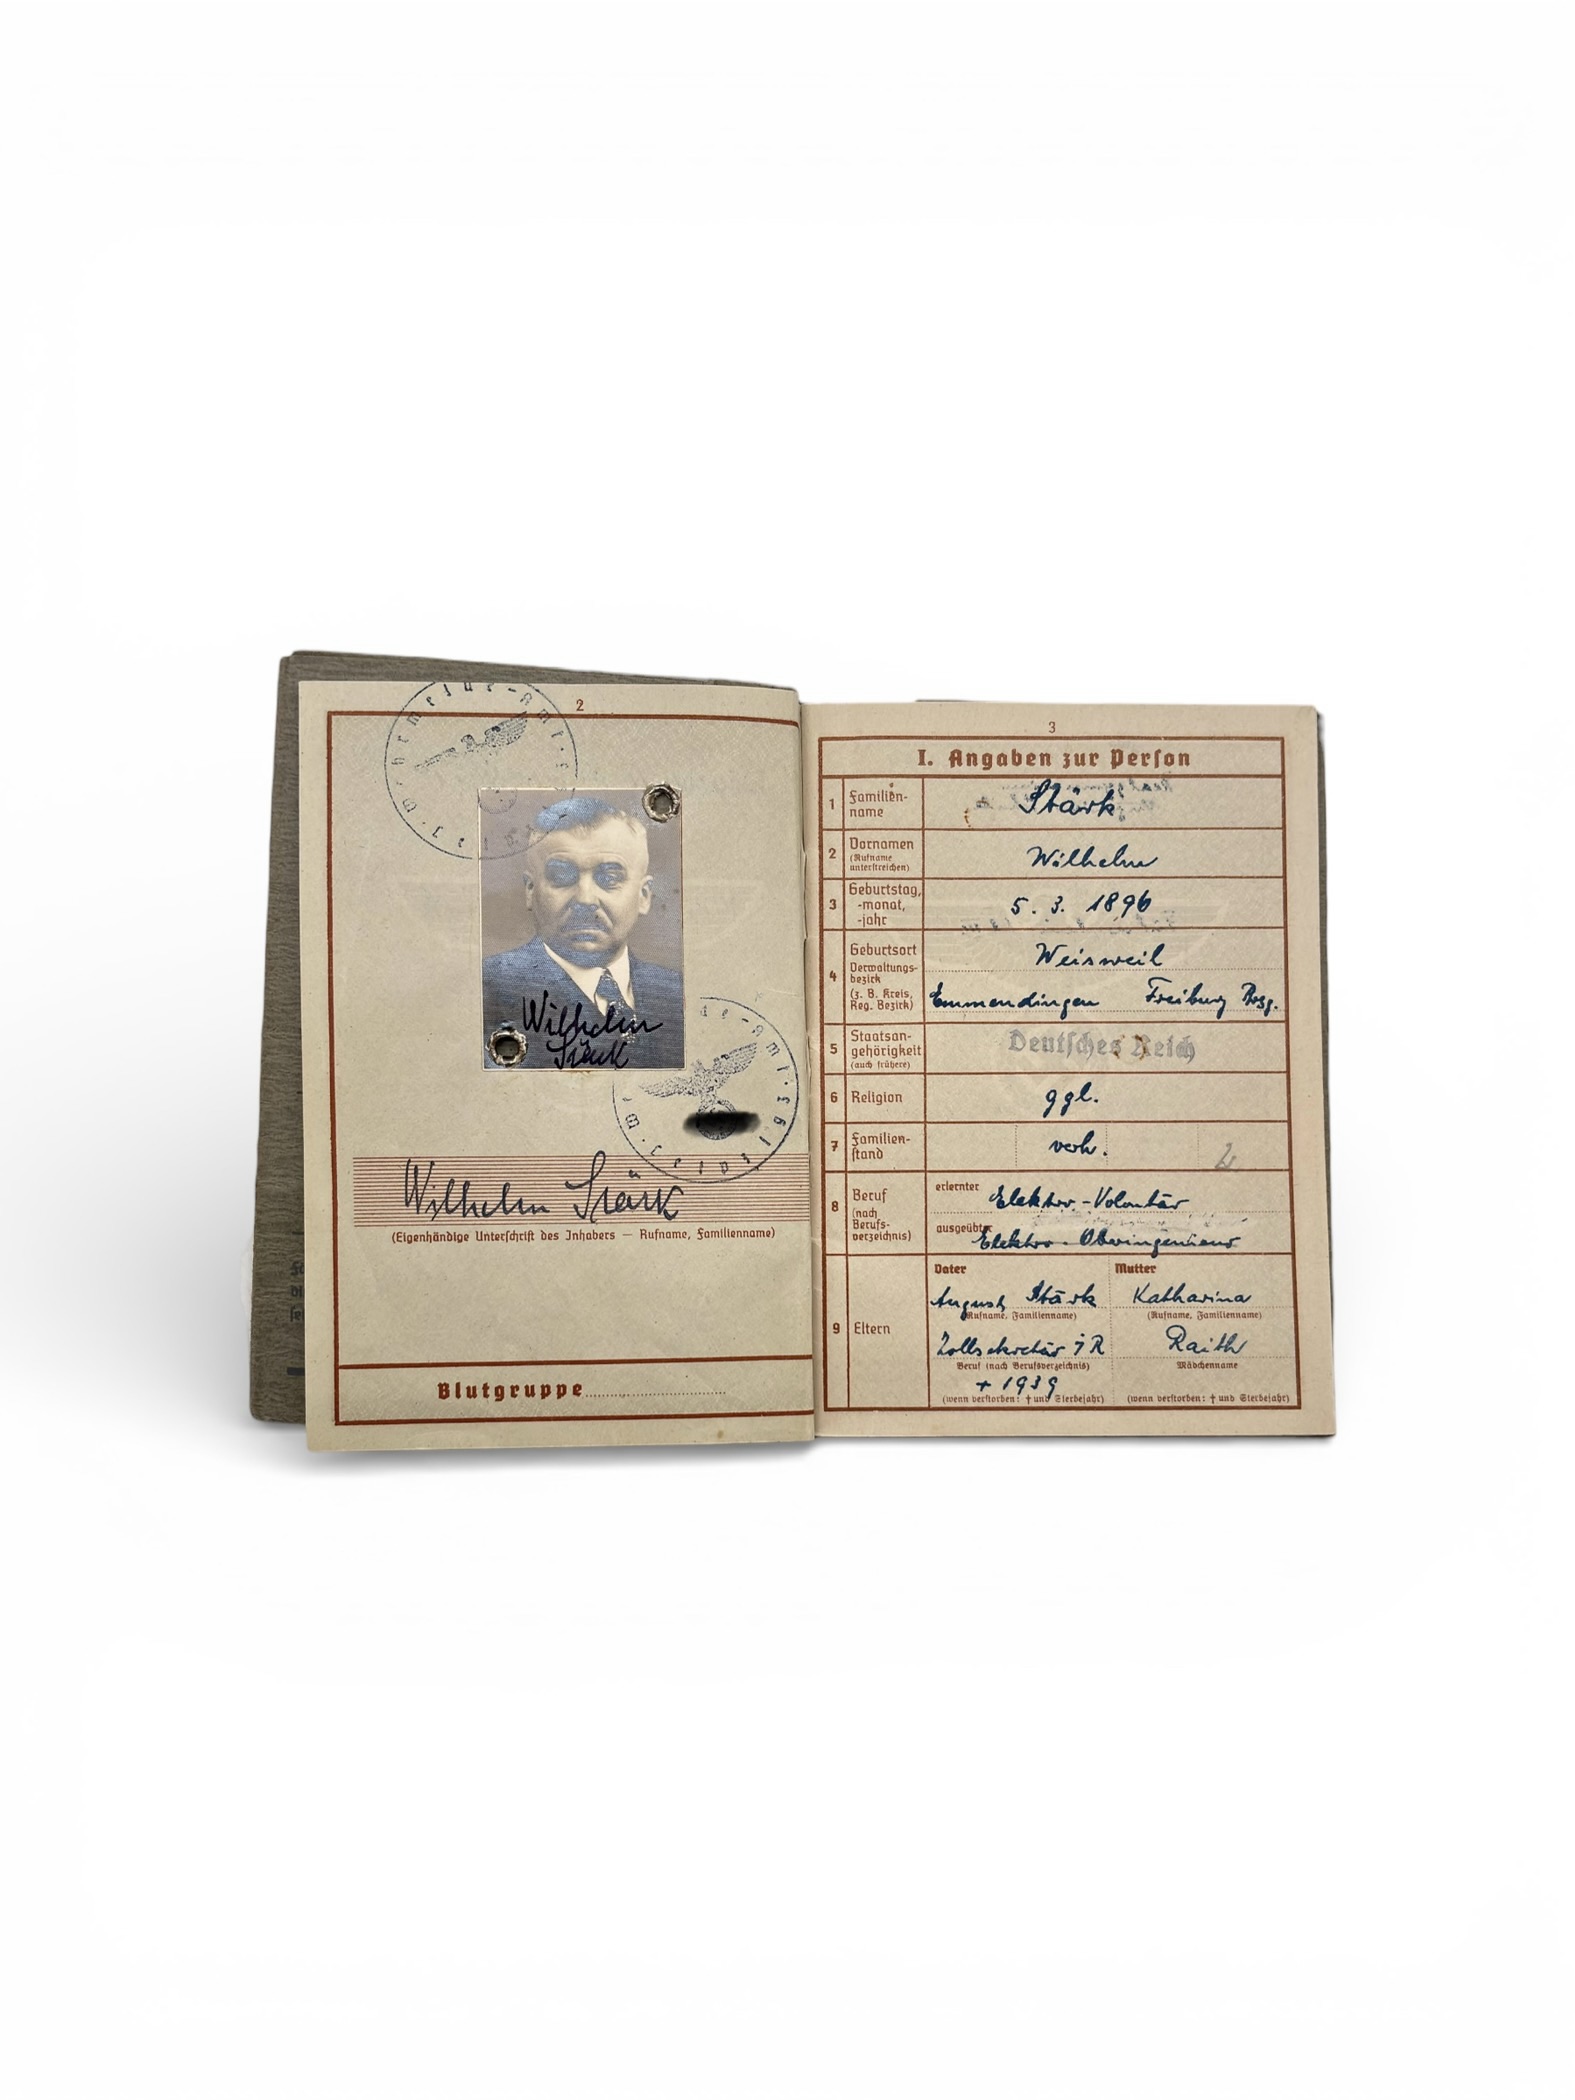 2
Wilhelm
Stärk
Wilhelm Stärk
(Eigenhändige Unterschrift des Inhabers — Rufname, Familienname)
Blutgruppe
3
I. Angaben zur Person
1 Familien-
name
Stärk
2 Vornamen
(Rufname
unterstreichen)
Wilhelm
3 Geburtstag,
-monat,
-jahr
5. 3. 1896
4 Geburtsort
Verwaltungs-
bezirk
(z. B. Kreis,
Reg. Bezirk)
Weisweil
Emmendingen Freiburg Brsg.
5 Staatsan-
gehörigkeit
(auch frühere)
Deutsches Reich
6 Religion
ggl.
7 Familien-
stand
verh.
8 Beruf
(nach
Berufs-
verzeichnis)
erlernter Elektro-Volontär
ausgeübter Elektro-Oberingenieur
9 Eltern
Vater
August Stärk
(Rufname, Familienname)
Zollsekretär i R
Beruf (nach Berufsverzeichnis)
+ 1939
(wenn verstorben: † und Sterbejahr)
Mutter
Katharina
(Rufname, Familienname)
Raith
Mädchenname
(wenn verstorben: † und Sterbejahr)